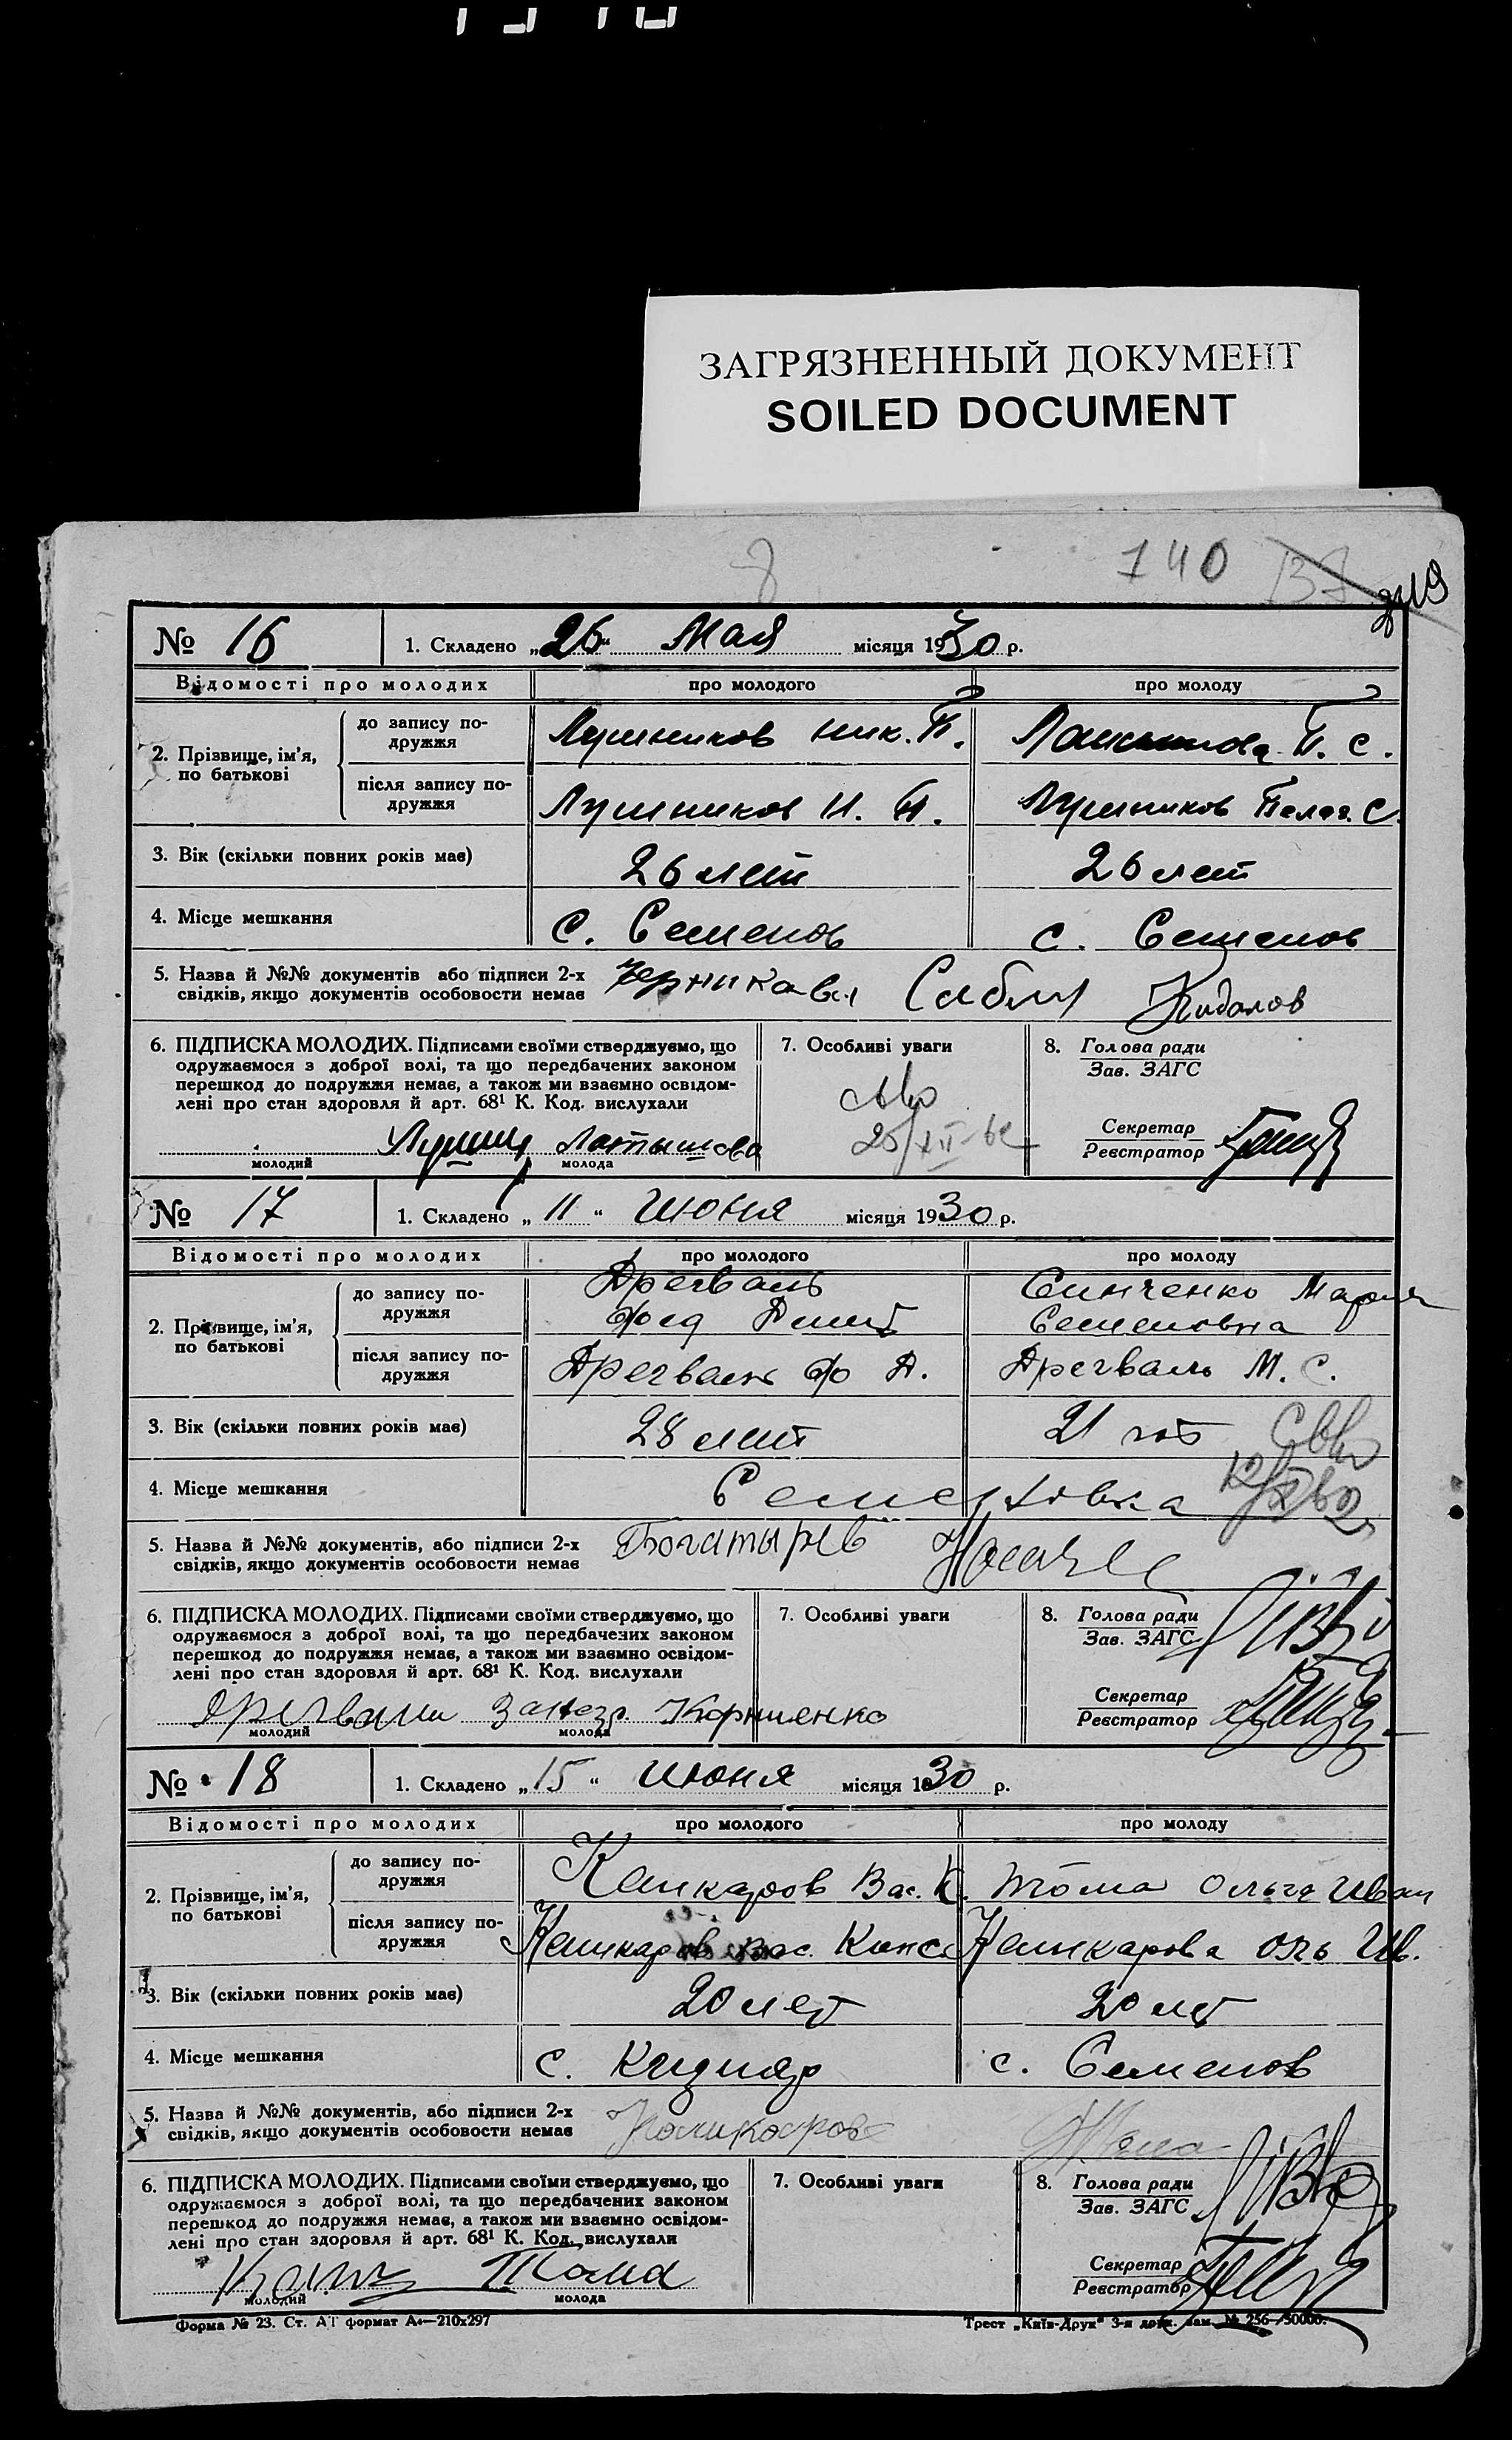 ЗАГРЯЗНЕННЫЙ ДОКУМЕНТ
SOILED DOCUMENT
8
140 137
№ 16 1. Складено „26“ Мая місяця 1930 р.
Відомості про молодих про молодого про молоду
2. Прізвище, ім’я, по батькові
до запису подружжя Лушников Ник. П. П. С.
після запису подружжя Лушников Н. П. Лушников Пелаг. С.
3. Вік (скільки повних років має) 26 лет 26 лет
4. Місце мешкання с. Семенов с. Семенов
5. Назва й №№ документів або підписи 2-х
свідків, якщо документів особовости немає
6. ПІДПИСКА МОЛОДИХ. Підписами своїми стверджуємо, що
одружаємося з доброї волі, та що передбачених законом
перешкод до подружжя немає, а також ми взаємно освідом-
лені про стан здоров’я й арт. 68¹ К. Код. вислухали
Латышова
молодий молода
7. Особливі уваги
8. Голова ради
Зав. ЗАГС
Секретар
Реєстратор
№ 17 1. Складено „11“ июня місяця 1930 р.
Відомості про молодих про молодого про молоду
2. Прізвище, ім’я, по батькові
до запису подружжя Дрегваль Фед Дмит Синченко Мария Семеновна
після запису подружжя Дрегваль Ф Д. Дрегваль М. С.
3. Вік (скільки повних років має) 28 лет 21 год
4. Місце мешкання Семеновка
5. Назва й №№ документів, або підписи 2-х
свідків, якщо документів особовости немає Богатырев
6. ПІДПИСКА МОЛОДИХ. Підписами своїми стверджуємо, що
одружаємося з доброї волі, та що передбачених законом
перешкод до подружжя немає, а також ми взаємно освідом-
лені про стан здоров’я й арт. 68¹ К. Код. вислухали
Корниенко
молодий молода
7. Особливі уваги
8. Голова ради
Зав. ЗАГС
Секретар
Реєстратор
№ 18 1. Складено „15“ июня місяця 1930 р.
Відомості про молодих про молодого про молоду
2. Прізвище, ім’я, по батькові
до запису подружжя Кашкаров Вас. К. Тома Ольга Иван
після запису подружжя Кашкаров Вас. Конс Кашкарова Оль Ив.
3. Вік (скільки повних років має) 20 лет 20 лет
4. Місце мешкання с. с. Семенов
5. Назва й №№ документів, або підписи 2-х
свідків, якщо документів особовости немає
6. ПІДПИСКА МОЛОДИХ. Підписами своїми стверджуємо, що
одружаємося з доброї волі, та що передбачених законом
перешкод до подружжя немає, а також ми взаємно освідом-
лені про стан здоров’я й арт. 68¹ К. Код. вислухали
Тома
молодий молода
7. Особливі уваги
8. Голова ради
Зав. ЗАГС
Секретар
Реєстратор
Форма № 23. Ст. АТ формат А₄—210x297 Трест „Київ-Друк“ 3-я друк. зам. № 256—50000.